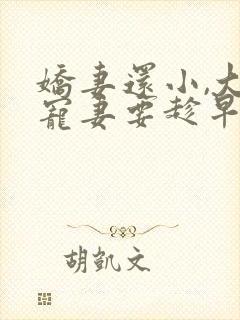 嬌妻還小,大
寵妻要趁早
胡凱文